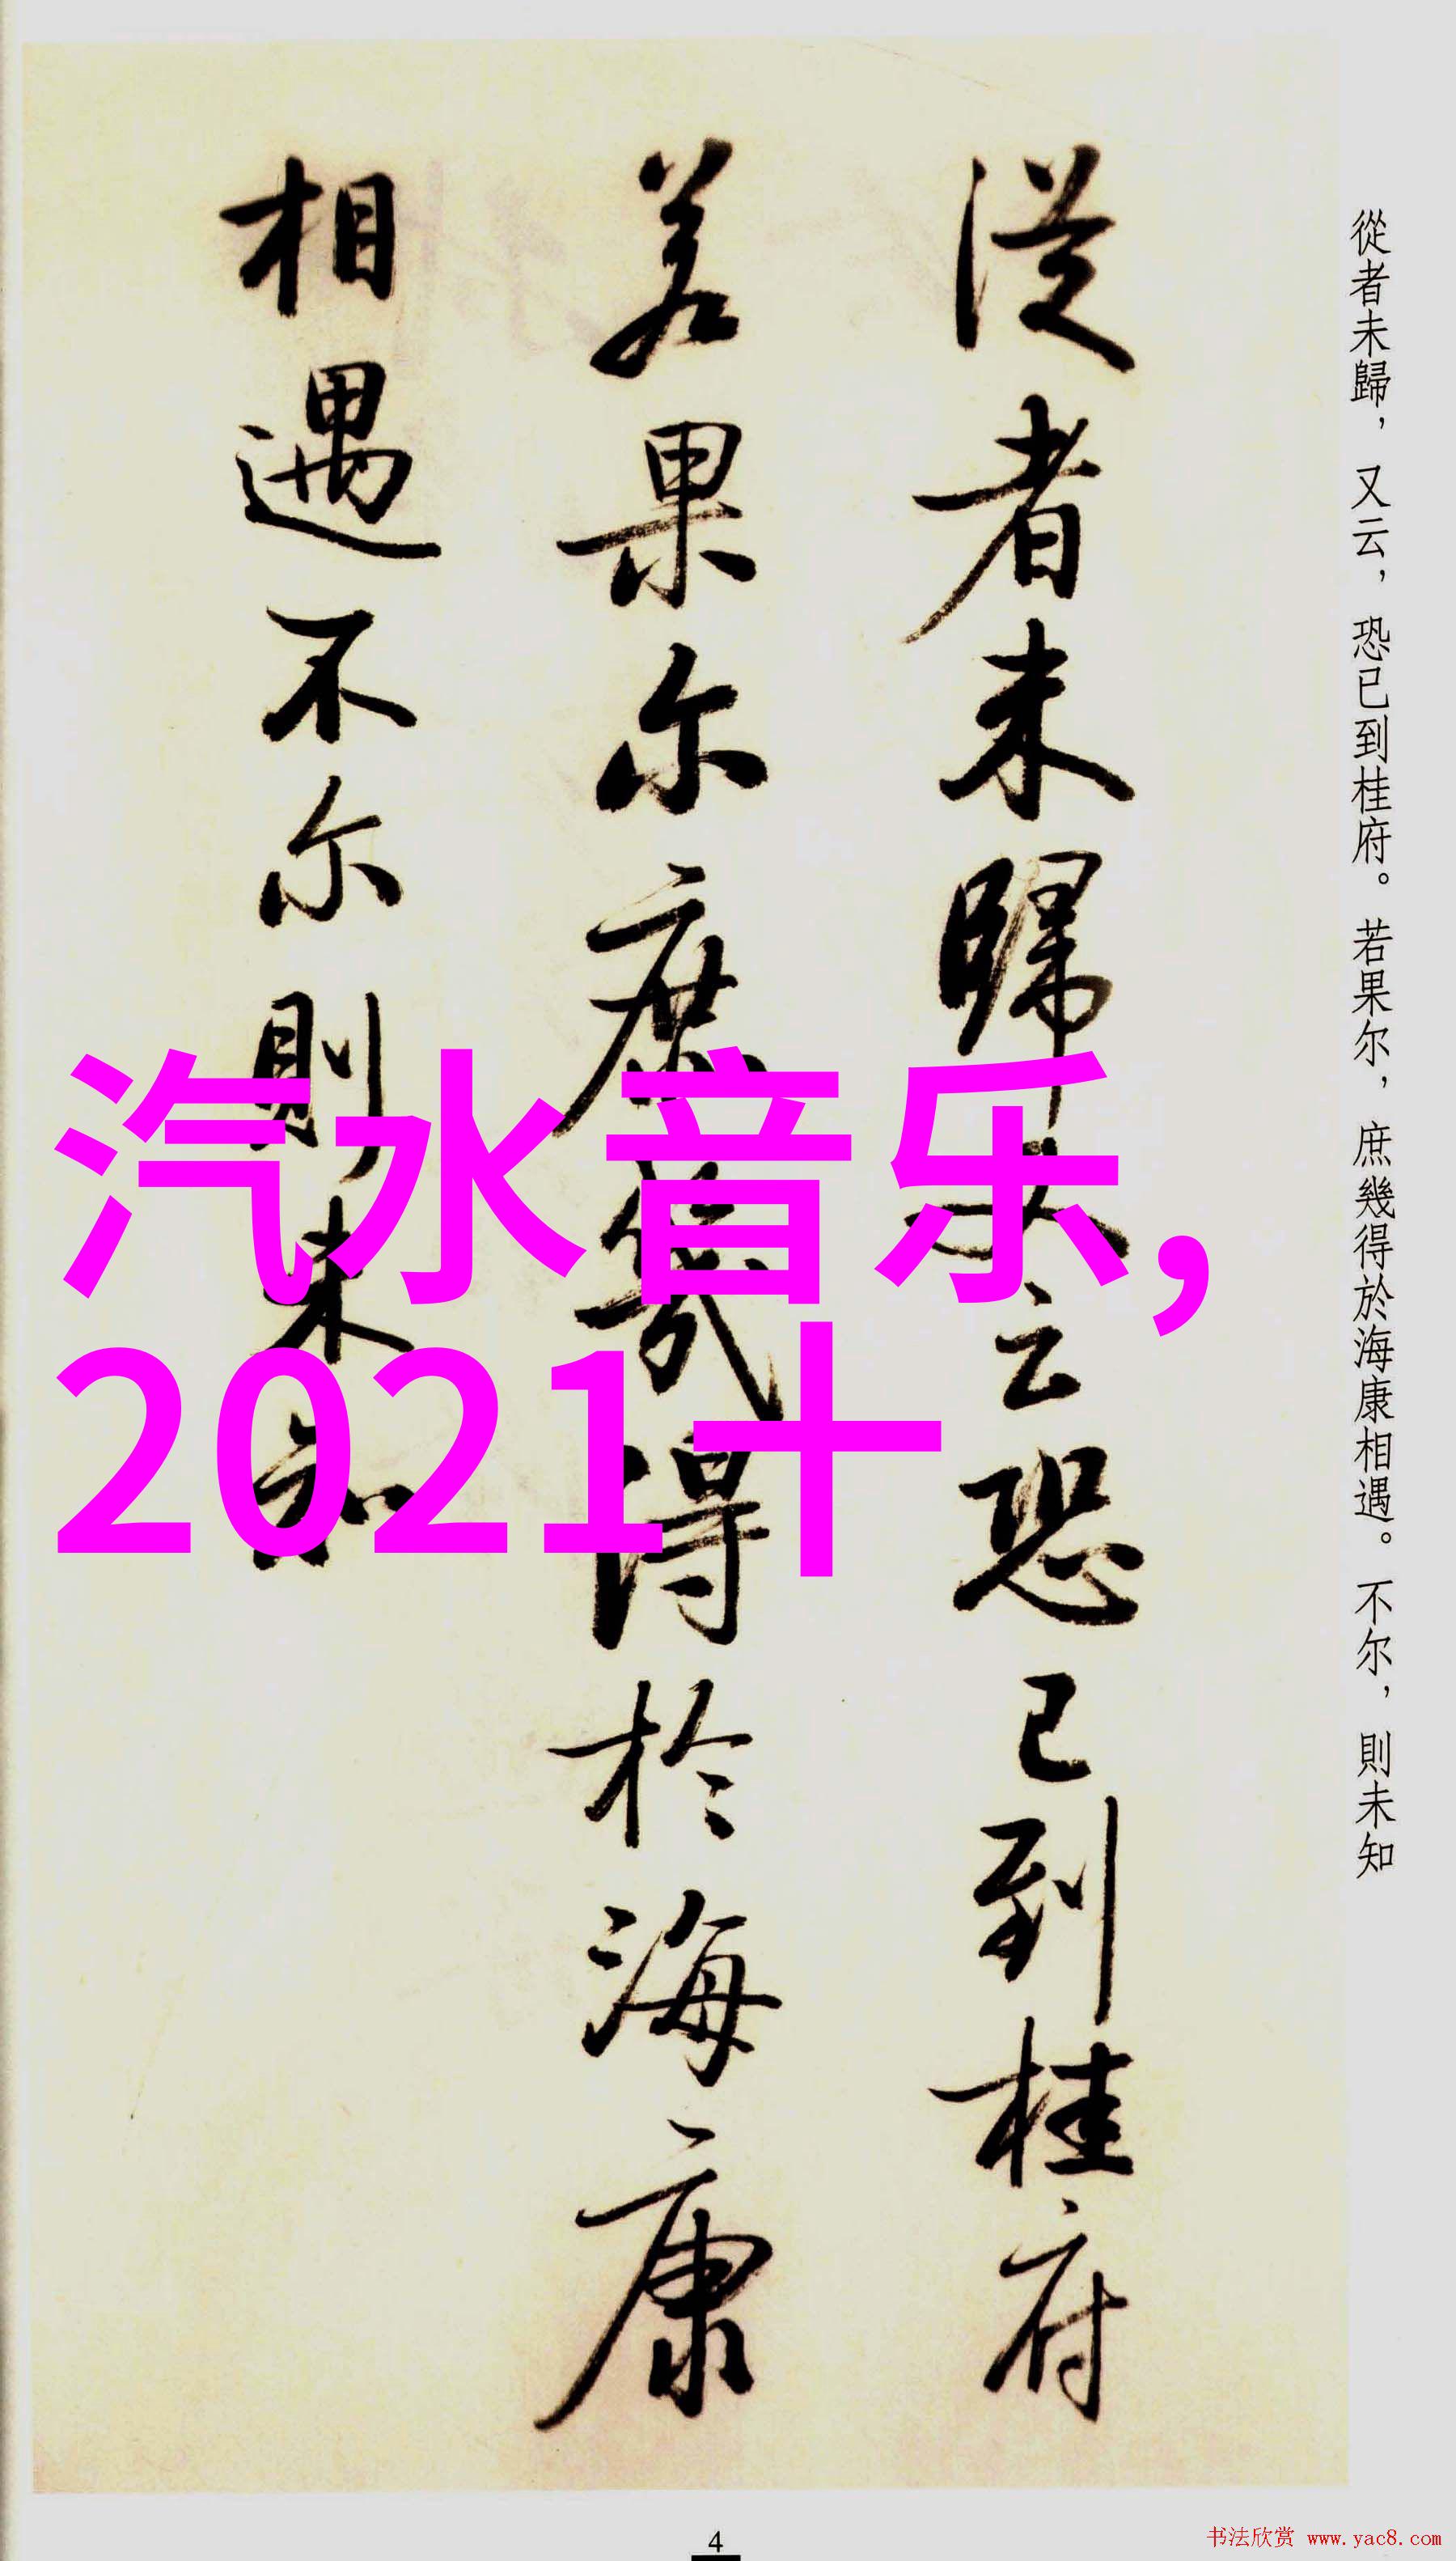 從者未歸，又云，恐已到桂府。若果尔，庶幾得於海康相遇。不尔，則未知
从者未歸又云恐已到桂府
若果尔庶幾得於海康
相遇不尔則未知
汽水音乐,
2021十
4
书法欣赏 www.yac8.com